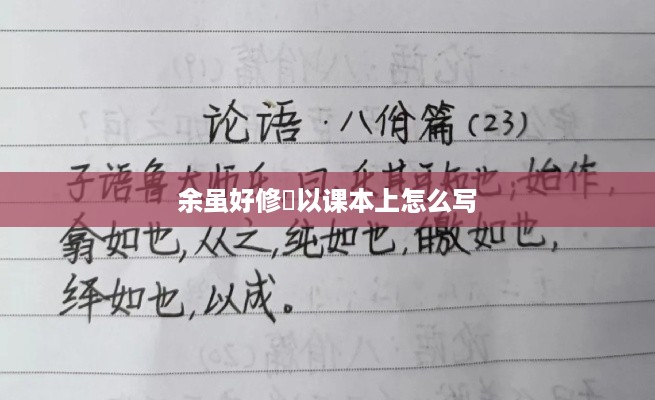 论语·八佾篇(23)
子语鲁大师乐，曰：乐其可知也；始作，
余虽好修以课本上怎么写
翕如也，从之，纯如也，皦如也，
绎如也，以成。